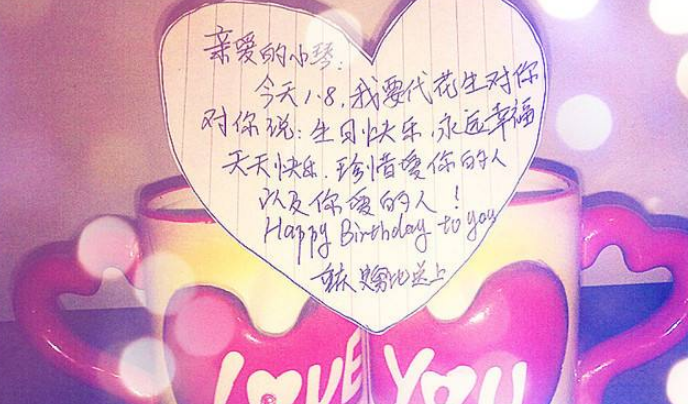 亲爱的小琴:
今天1.8,我要代花生对你
对你说:生日快乐,永远幸福
天天快乐.珍惜爱你的人
以及你爱的人!
Happy Birthday to you
重庆 送上
LOVE YOU